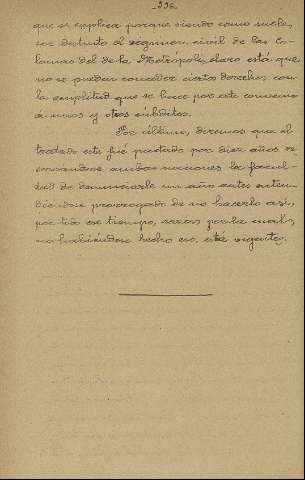 336.
que se explica porque siendo como suele,
ser distinto el régimen civil de las co-
lonias del de la Metrópoli, claro está que
no se puedan conceder ciertos derechos con
la amplitud que se hace por este convenio
á unos y otros súbditos.
Por último, diremos que el
tratado este fué pactado por diez años re
servandose ambas naciones la facul-
tad de denunciarle un año antes enten
diendose prorrogado de no hacerlo así,
por tido ese tiempo, razón por la cual,
no habiéndose hecho eso, está vigente.